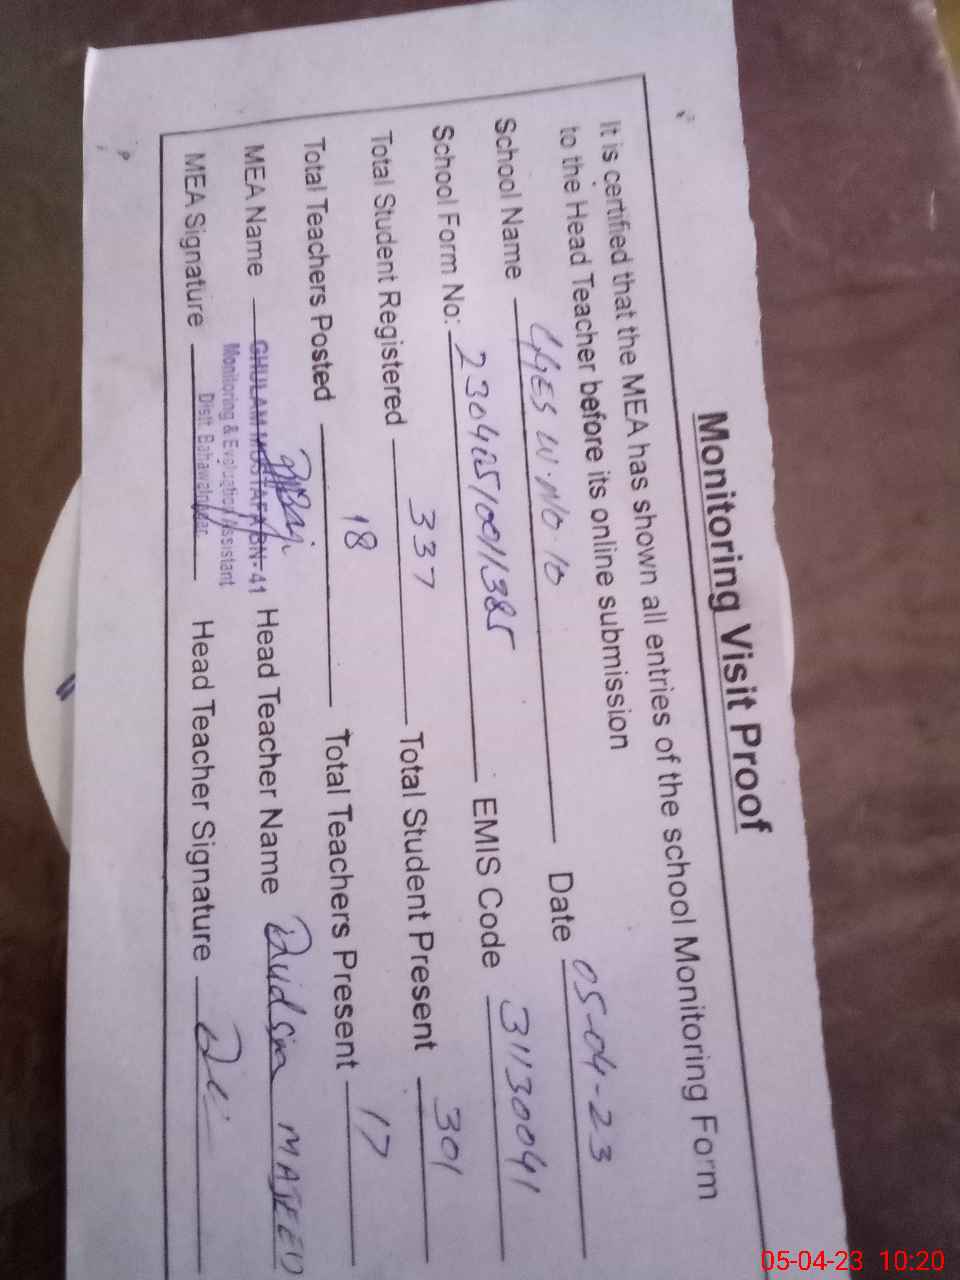 Monitoring Visit Proof
It is certified that the MEA has shown all entries of the school Monitoring Form
to the Head Teacher before its online submission
School Name GGES W.NO.10 Date 05-04-23
School Form No: EMIS Code 31130041
Total Student Registered 337 Total Student Present 301
Total Teachers Posted 18 Total Teachers Present 17
MEA Name GHULAM MUSTAFA BN-41 Head Teacher Name MAJEED
Monitoring & Evaluation Assistant
MEA Signature Distt. Bahawalnagar Head Teacher Signature
05-04-23 10:20